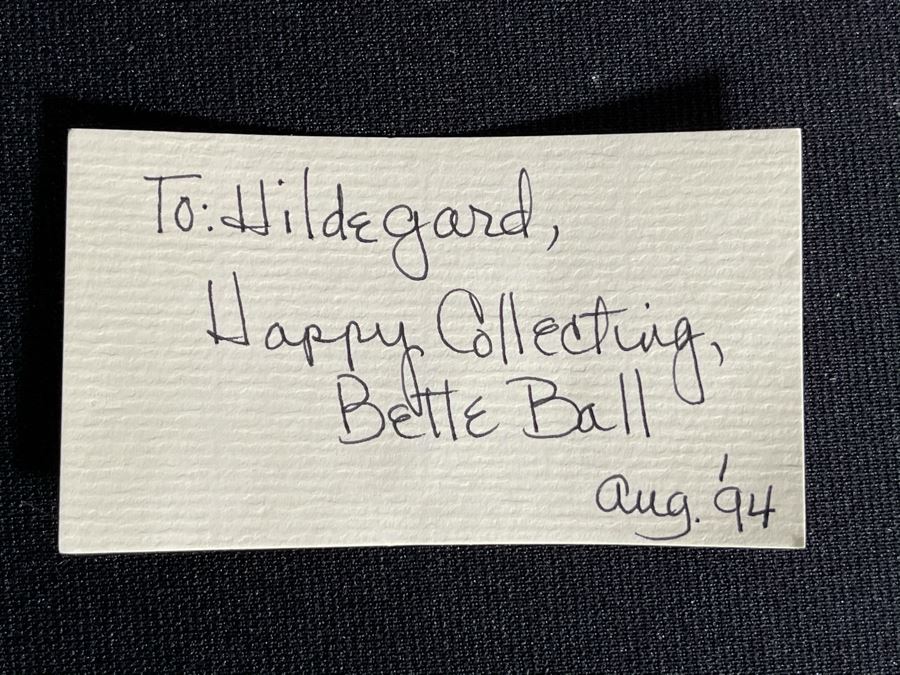 To: Hildegard,
Happy Collecting,
Bette Ball
Aug. '94